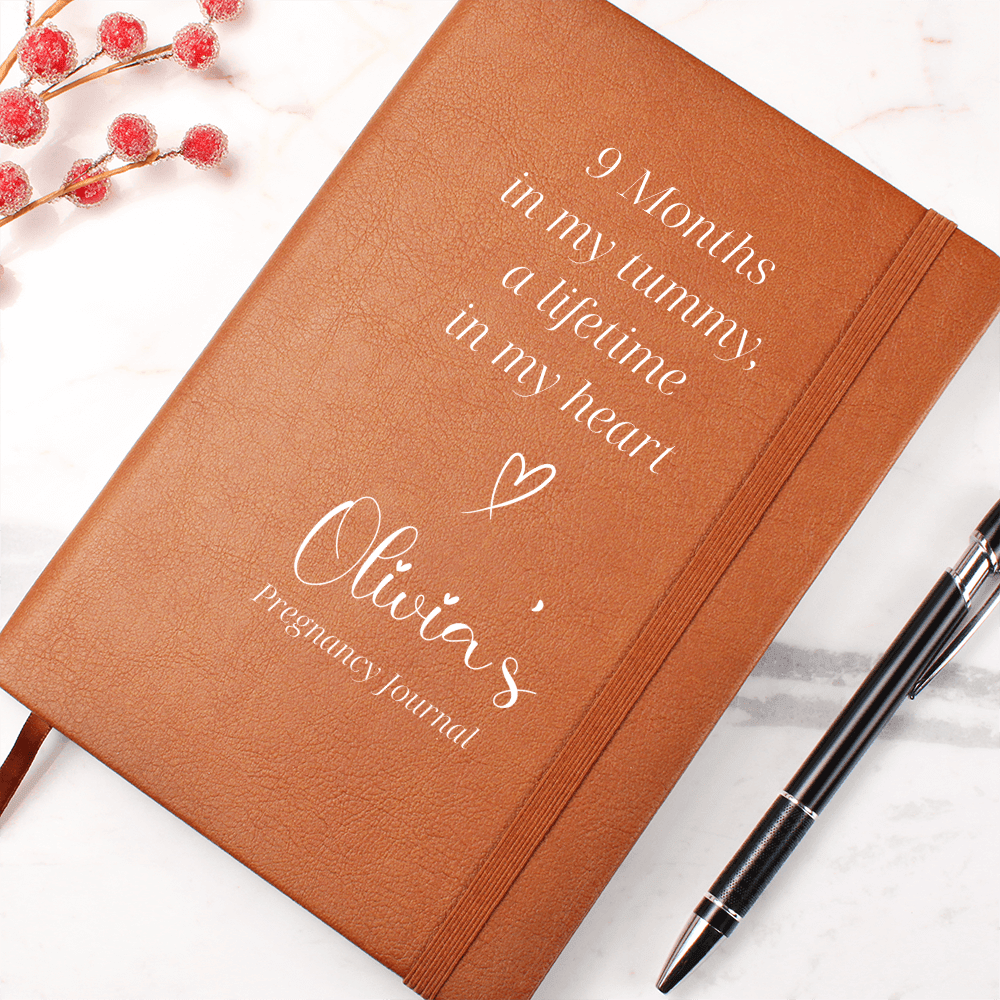 9 Months
in my tummy,
a lifetime
in my heart
Olivia's
Pregnancy Journal